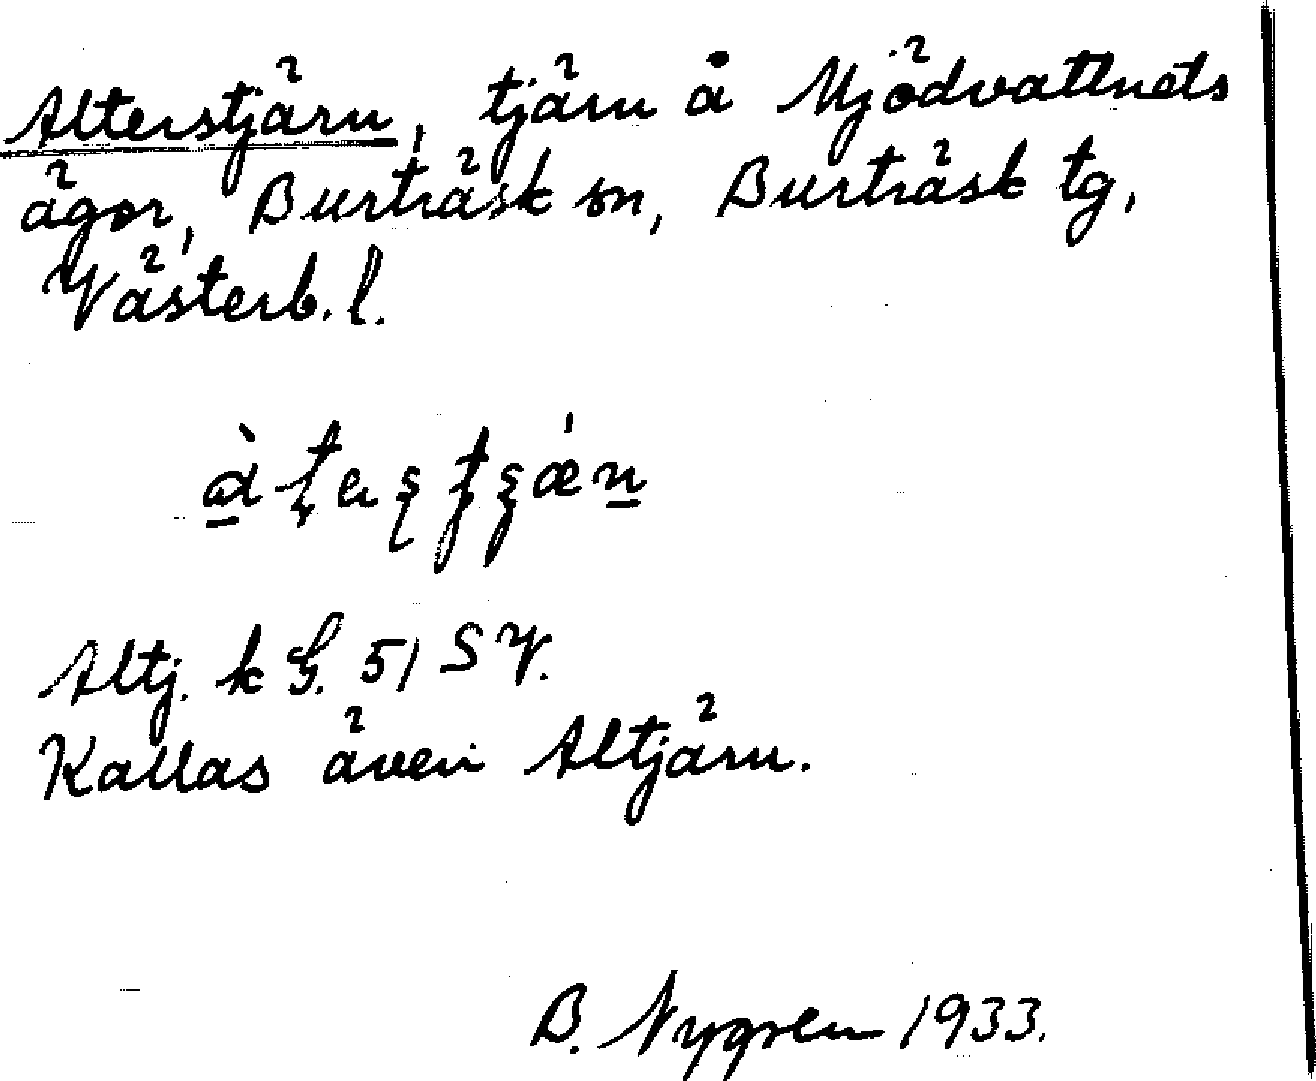 Alterstjärn, tjärn å Mjödvattnets
ägor, Burträsk sn, Burträsk tg,
Västerb. l.
Altj. k G. 51 SV.
Kallas även Altjärn.
B. Nygren 1933.